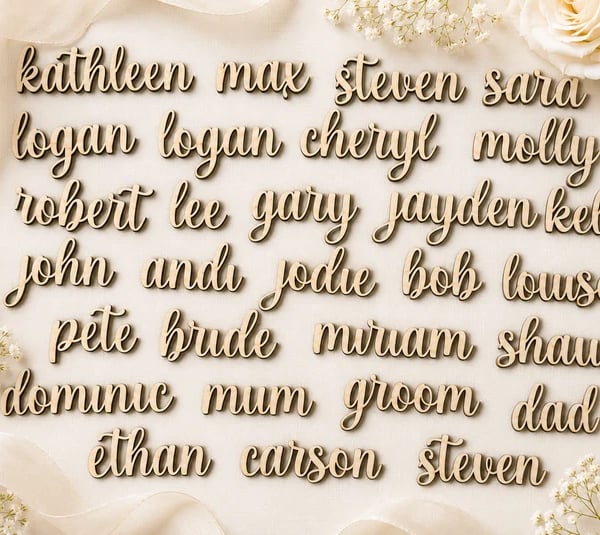 kathleen max steven sara
logan logan cheryl molly
robert lee gary jayden
john andi jodie bob louise
pete bride miriam
dominic mum groom dad
ethan carson steven